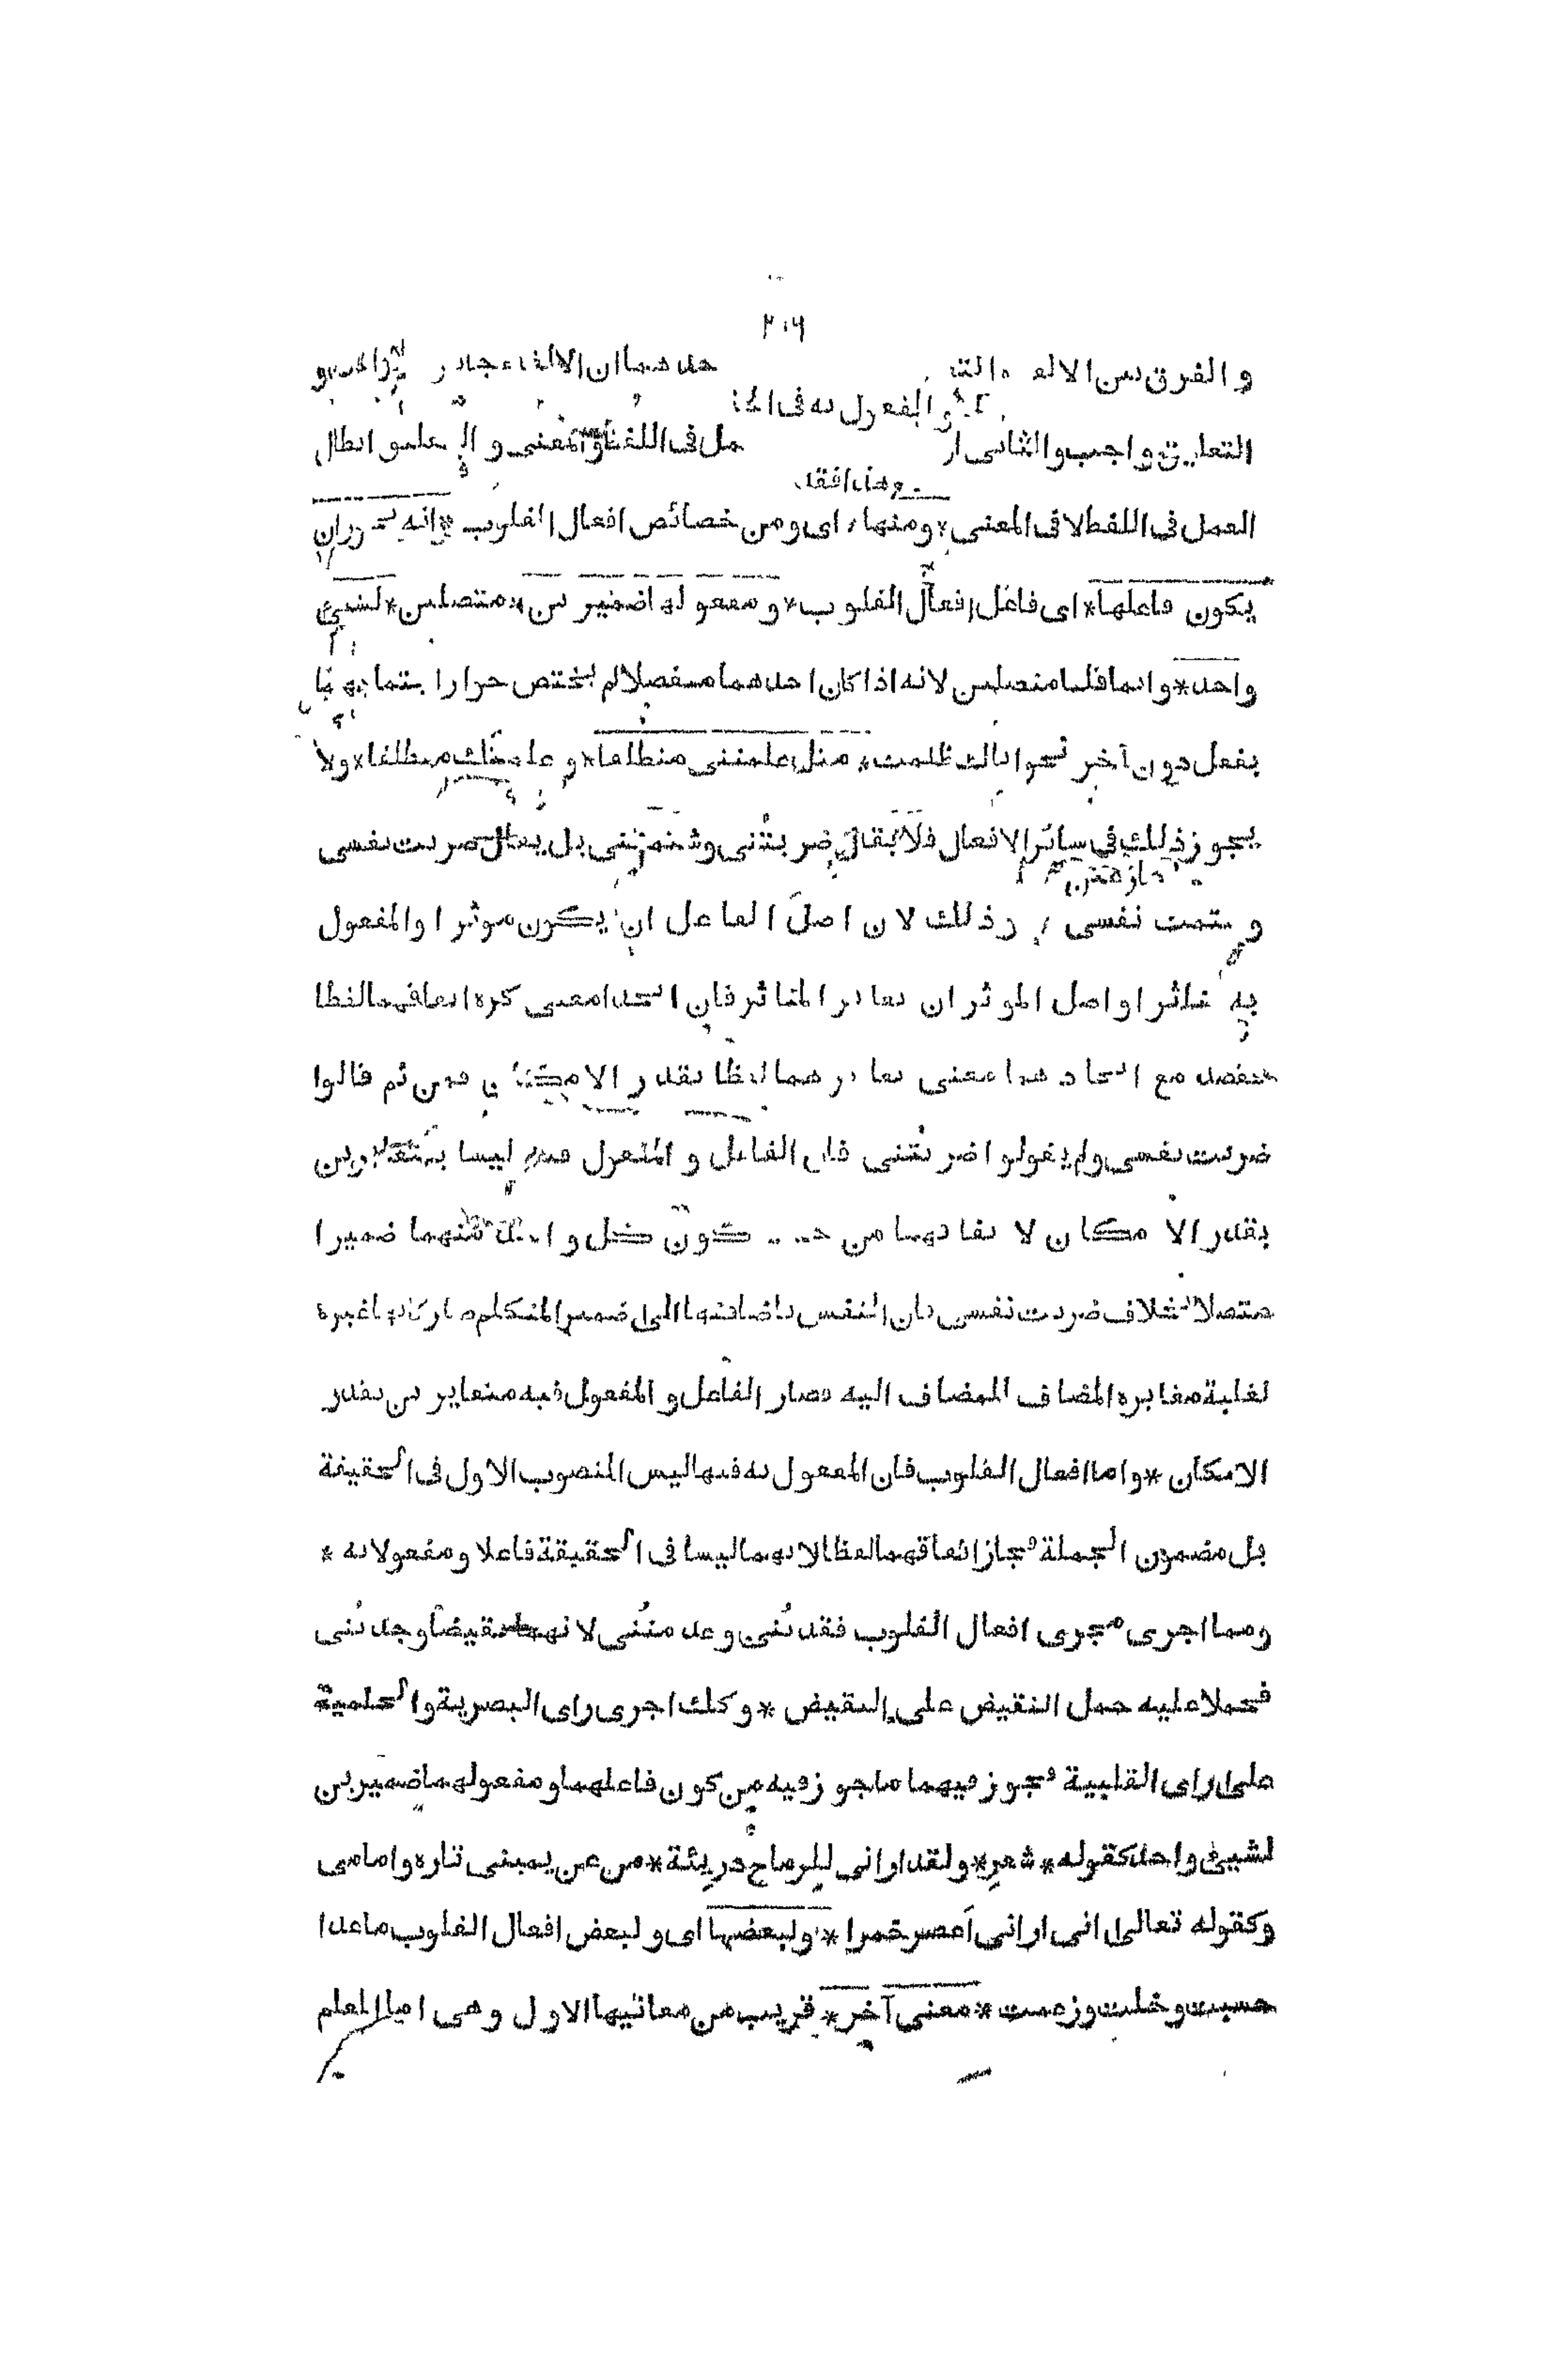 ٣٠٦
و الفرق بين الالغاء والتعليق احدهما ان الالغاء جائز لا واجب و
التعليق واجب والثاني العمل في اللفظ والمعنى و التعليق ابطال
وهذا فقد
العمل في اللفظ لا في المعنى * ومنها * اى ومن خصائص افعال القلوب * انه يجوز ان
يكون فاعلها * اى فاعل افعال القلوب * و مفعولها ضميرين * متصلين * لشيئ
واحد * وانما قلنا متصلين لانه اذا كان احدهما منفصلا لم يختص جوازا
بفعل دون آخر نحو اياك ظلمت * مثل علمتني منطلقا * و علمتك منطلقا * ولا
يجوز ذلك في سائر الافعال فلا يقال ضربتني وشتمتني بل يقال ضربت نفسى
و شتمت نفسى وذلك لان اصل الفاعل ان يكون موثرا والمفعول
به متاثرا واصل الموثر ان يغاير المتاثر فان اتحدا معنى كره اتفاقهما لفظا
فقصد مع اتحادهما معنى تغايرهما لفظا بقدر الامكان فمن ثم قالوا
ضربت نفسى ولم يقولوا ضربتني فان الفاعل و المفعول فيه ليسا بمتغايرين
بقدر الامكان لاتفاقهما من حيث كون كل واحد منهما ضميرا
متصلا بخلاف ضربت نفسى فان النفس باضافتها الى ضمير المتكلم صارت كانها غيره
لغلبة مغايرة المضاف للمضاف اليه فصار الفاعل و المفعول فيه متغايرين بقدر
الامكان * واما افعال القلوب فان المفعول به فيها ليس المنصوب الاول في الحقيقة
بل مضمون الجملة فجاز اتفاقهما لفظا لانهما ليسا في الحقيقة فاعلا و مفعولا به *
ومما اجرى مجرى افعال القلوب فقدتني وعدمتني لانهما نقيضا وجدتني
فحملا عليه حمل النقيض على النقيض * وكذلك اجرى راى البصرية والحلمية
على راى القلبية فجوز فيهما ما جوز فيه من كون فاعلهما و مفعولهما ضميرين
لشيئ واحد كقوله * شعر * ولقد اراني للرماح دريئة * من عن يميني تارة وامامى
وكقوله تعالى اني اراني اعصر خمرا * ولبعضها اى و لبعض افعال القلوب ما عدا
حسبت وخلت وزعمت * معنى آخر * قريب من معانيها الاول وهى اما العلم